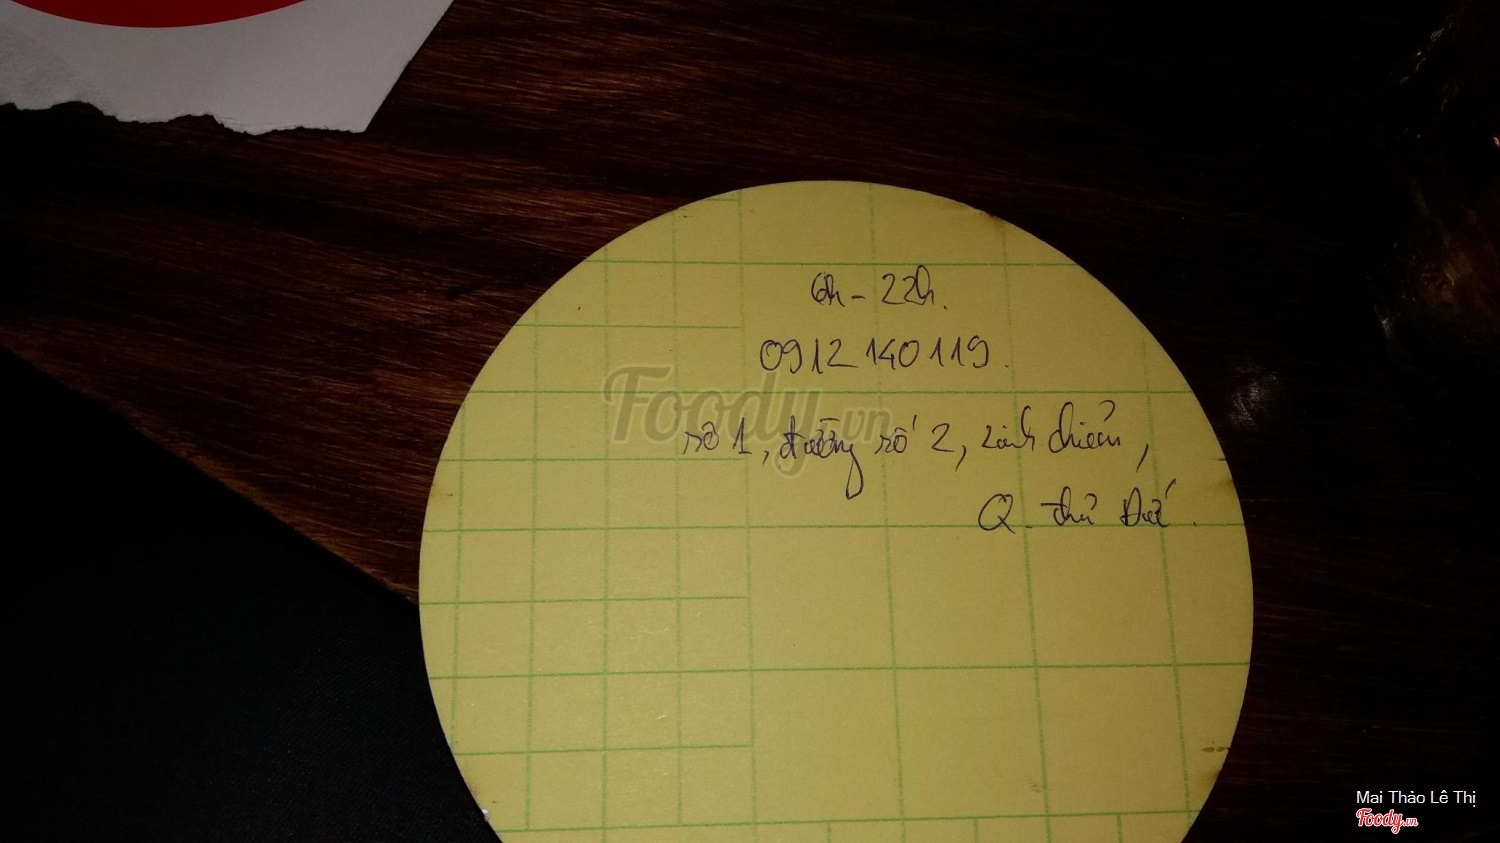 6h - 22h.
0912 140 119.
Foody.vn
số 1, đường số 2, Linh Chiểu,
Q. Thủ Đức.
Mai Thảo Lê Thị
Foody.vn